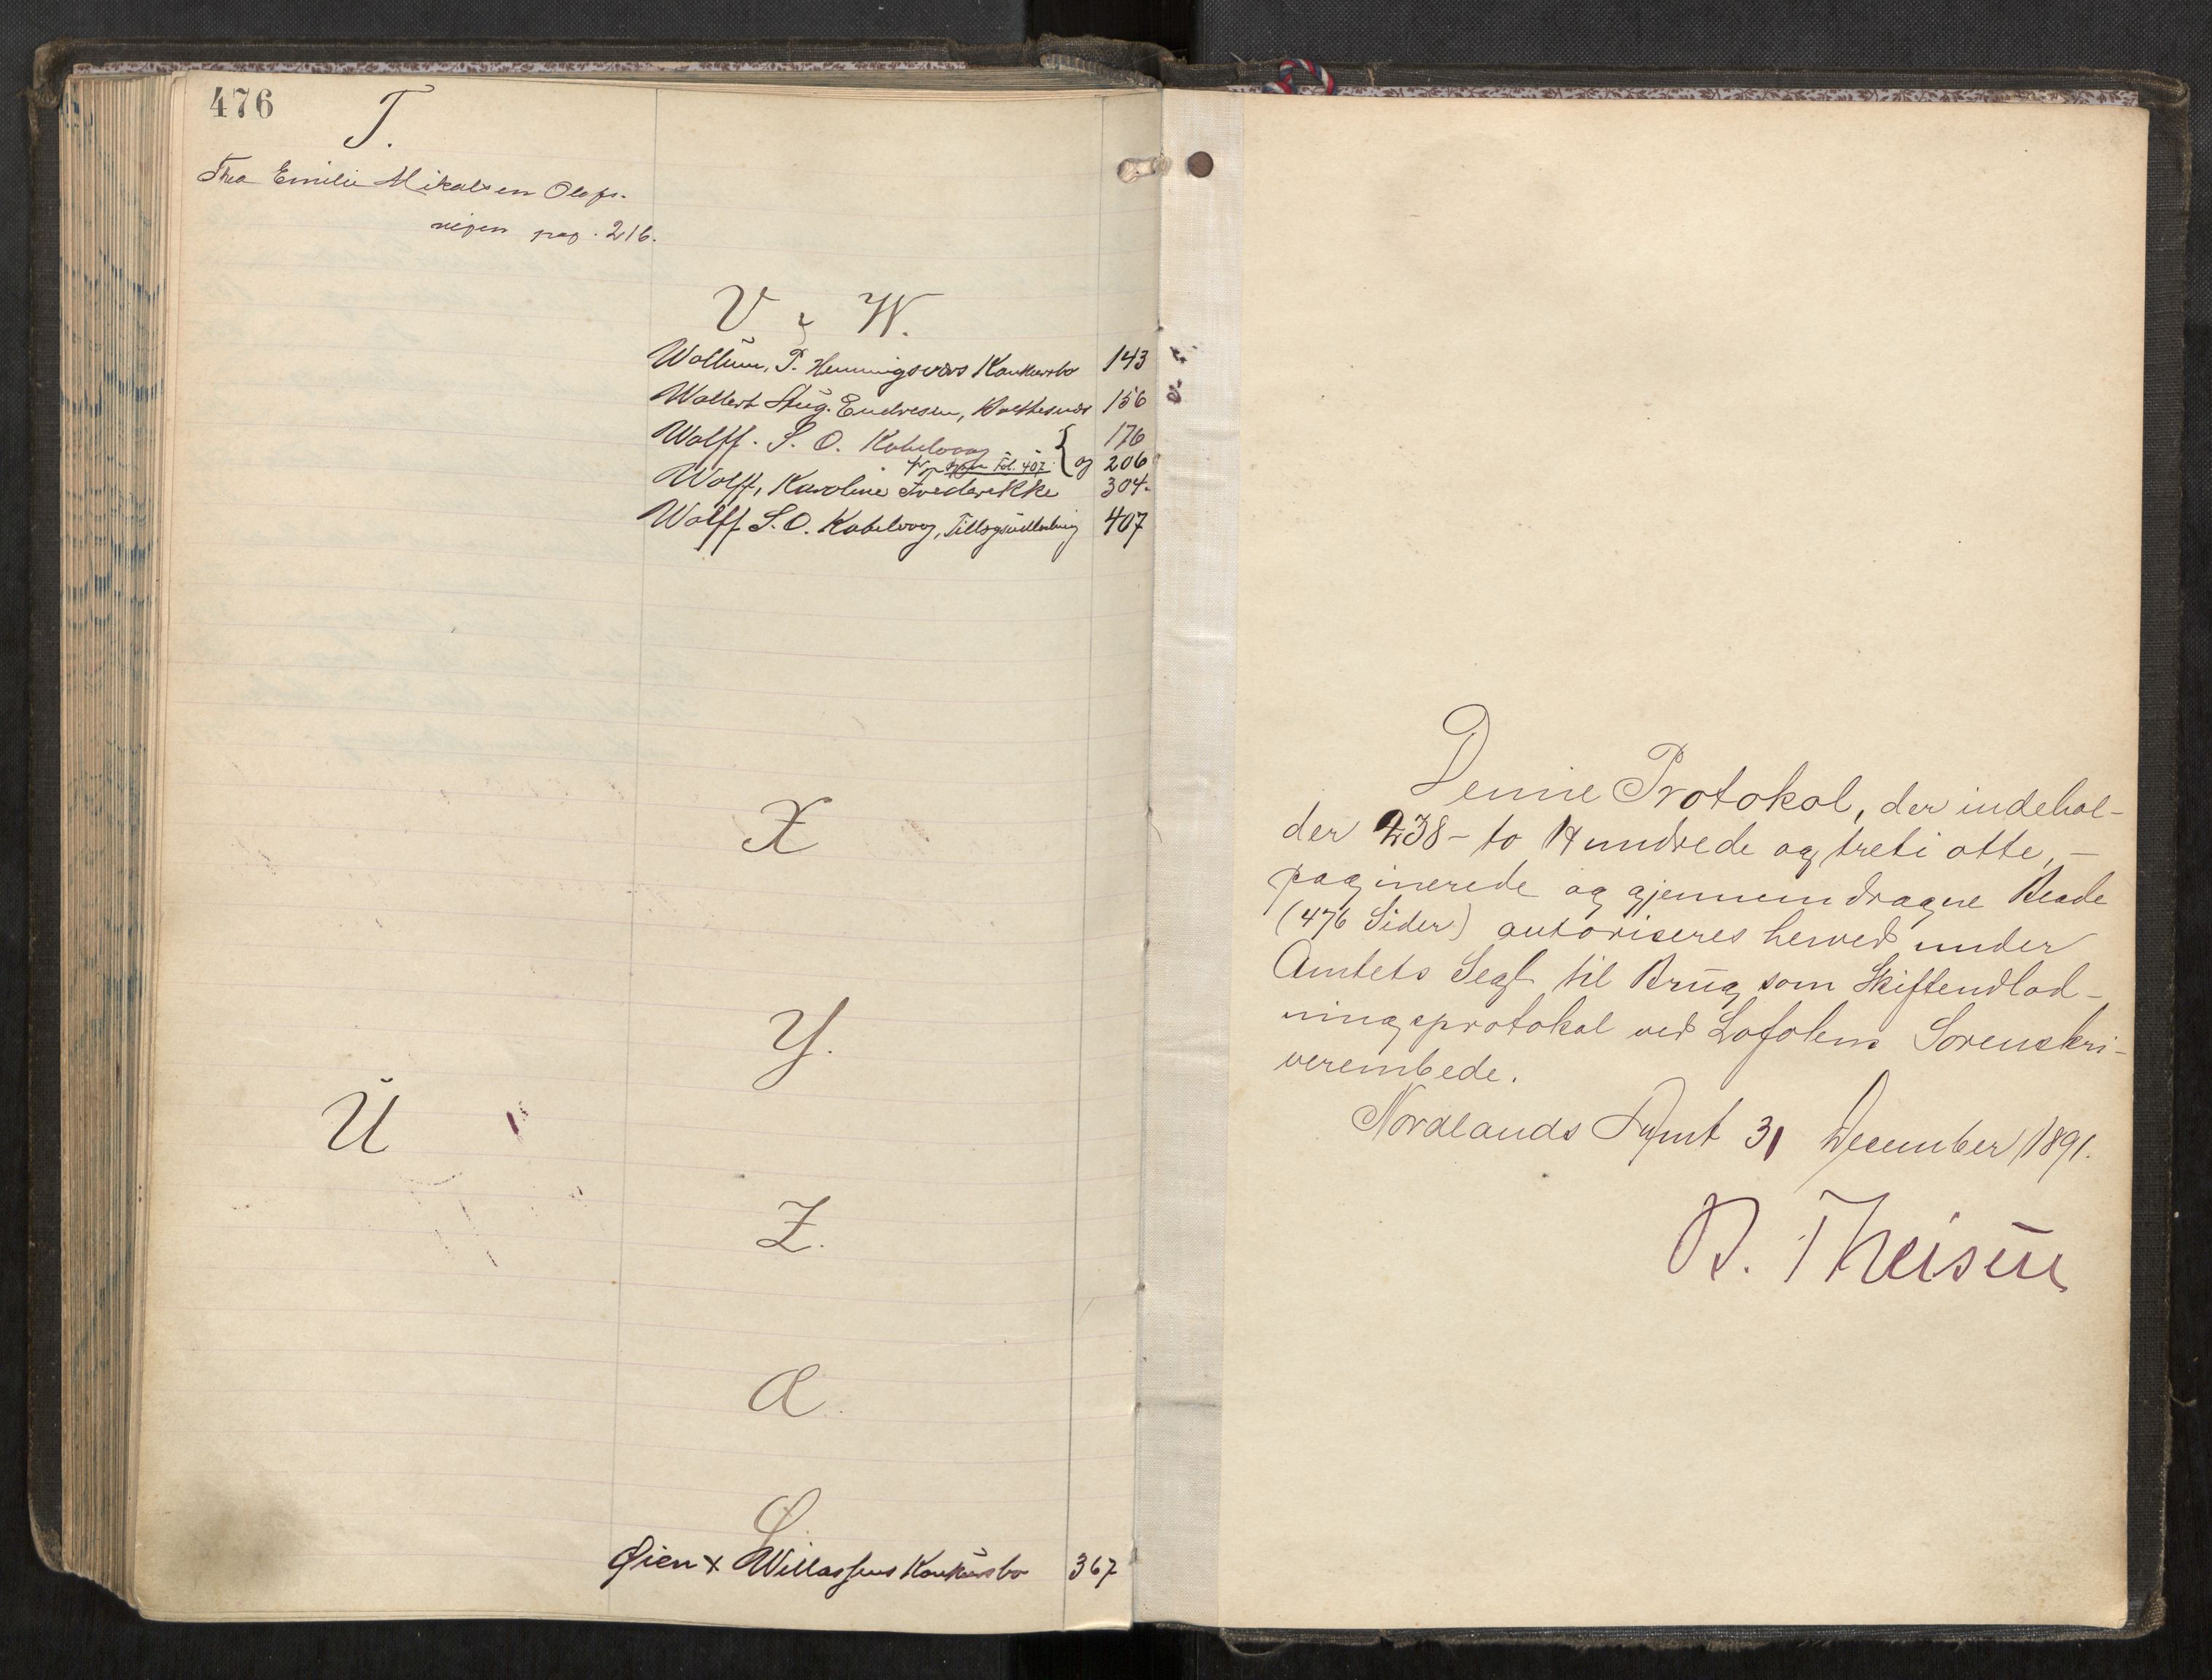 476
T.
Thea Emilie Mikalsen Olofs-
pag. 216.
V & W.
Wollum, P. Hennigsværs Konkursbo 143
Wollert Aug. Endresen, 156
Wolff. S. O. Kabelvaag { 176
Fol. 407. og 206
Wolff, Karoline Frederikke 304.
Wolff S. O. Kabelvaag, Tillægsudlodning 407
X
Y.
U
Z.
Æ.
Ø
Øien & Willassens Konkursbo 367
Denne Protokol, der indehol-
der 238 - to Hundrede og treti otte, -
paginerede og gjennemdragne Blade
(476 Sider) autoriseres herved under
Amtets Segl til Brug som Skifteudlod-
ningsprotokol ved Lofotens Sorenskri-
verembede.
Nordlands Amt 31 December 1891.
B. Theisen